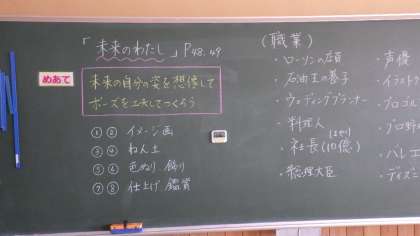 「未来のわたし」P48.49
めあて
未来の自分の姿を想像して
ポーズを工夫してつくろう
①② イメージ画
③④ ねん土
⑤⑥ 色ぬり 飾り
⑦⑧ 仕上げ 鑑賞
(職業)
・ローソンの店員
・石油王の養子
・ウェディングプランナー
・料理人
・社長(10億)
・総理大臣
・声優
・イラスト
・プロゴル
・プロ野
・バレエ
・ディズニ